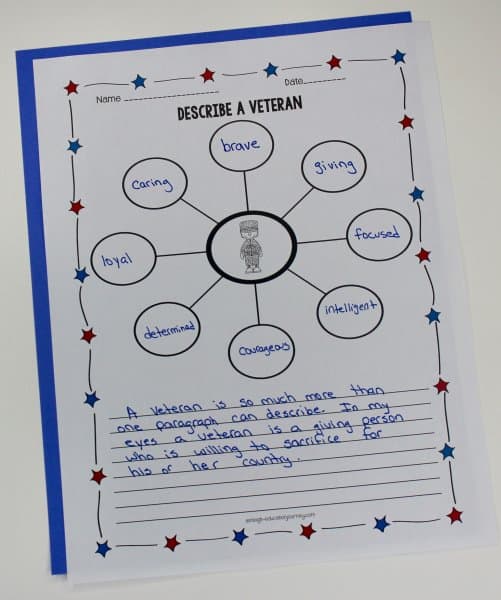 Name Date
DESCRIBE A VETERAN
brave
caring
giving
loyal
focused
determined
intelligent
courageous
A veteran is so much more than
one paragraph can describe. In my
eyes a veteran is a giving person
who is willing to sacrifice for
his or her country.